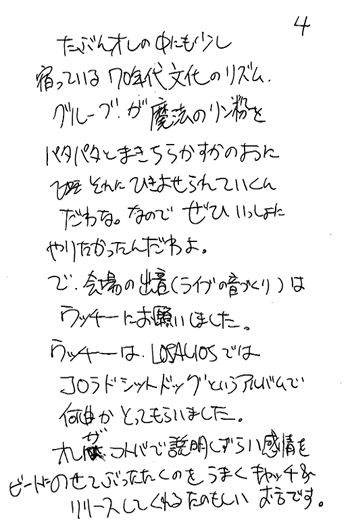 4
たぶんオレの中にも少し
宿っている70年代文化のリズム.
グルーブ.が魔法のリン粉を
パタパタとまきちらかすかのおに
それにひきよせられていくん
だわな。なので ぜひいっしょに
やりたかったんだわよ。
で.会場の出音(ライブの音づくり)は
ウッチーにお願いしました。
ウッチーは.LOSALIOSでは
コロラドシットドッグというアルバムで
何曲かとってもらいました。
オレがコトバで説明しずらい感情を
ビートにのせてぶったたくのをうまくキャッチ&
リリースしてくれるたのもしいお方です。